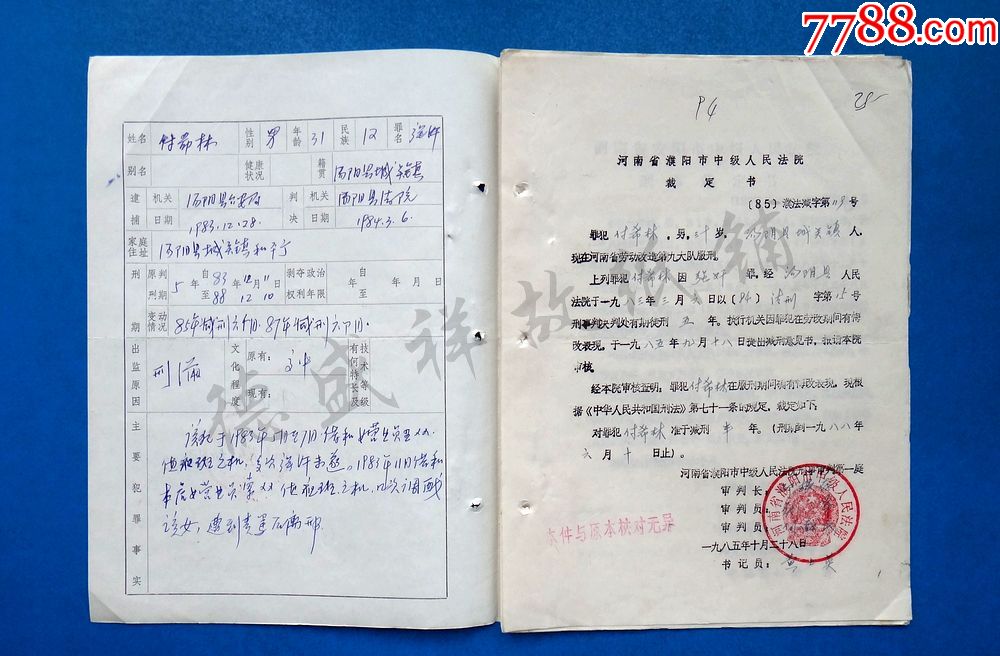 7788.com
姓名 付希林 性别 男 年龄 31 民族 12 罪名 强奸
别名 健康状况 籍贯 汤阴县城关镇
逮捕 机关 汤阴县公安局 判决 机关 汤阴县法院
日期 1983.12.28. 日期 1984.3.6.
家庭住址 汤阴县城关镇
刑期 原判刑期 5年 自 83 12月11 至 88 12 10 剥夺政治权利年限 自 年 月 日 至 年 月 日
变动情况 85年减刑六个月. 87年减刑六个月.
出监原因 刑满 文化程度 原有: 高中 现有: 有何特长及技术等级
主要犯罪事实
该犯于1983年 借和女营业员
值班之机, 强奸未遂。1983年11月借和
本店女营业员 值班之机, 调戏
该女, 遭到责骂
P4
25
河南省濮阳市中级人民法院
裁定书
(85)濮法减字第 号
罪犯付希林,男,三十岁, 汤阴县城关镇人,
现在河南省劳动改造第九大队服刑。
上列罪犯付希林因强奸罪,经汤阴县人民
法院于一九八三年三月六日以(84)法刑字第15号
刑事判决判处有期徒刑五年。执行机关因罪犯在劳改期间有悔
改表现,于一九八五年九月十八日提出减刑意见书,报请本院
审核。
经本院审核查明:罪犯付希林在服刑期间确有悔改表现。现根
据《中华人民共和国刑法》第七十一条的规定,裁定如下:
对罪犯付希林准于减刑半年。(刑期到一九八八年
六月十日止)。
河南省濮阳市中级人民法院刑事审判第一庭
审判长:
审判员:
审判员:
一九八五年十月二十八日
书记员:
河南省濮阳市中级人民法院
本件与原本核对无异
德盛祥故纸铺